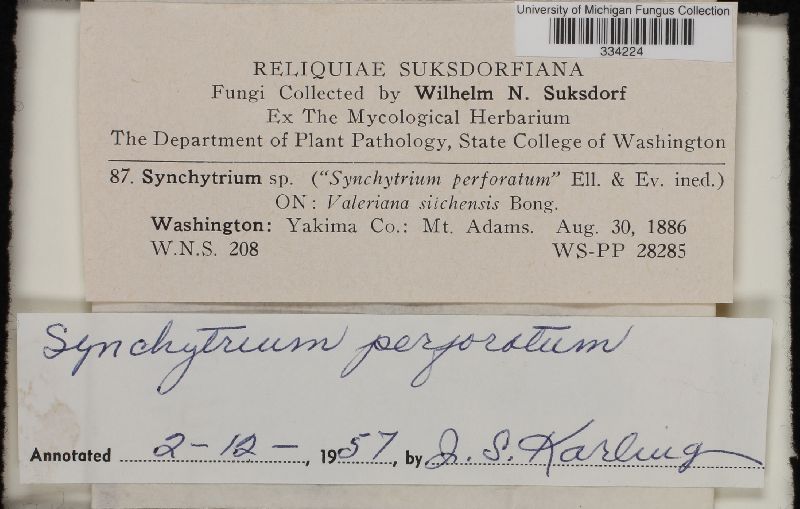 University of Michigan Fungus Collection
334224
RELIQUIAE SUKSDORFIANA
Fungi Collected by Wilhelm N. Suksdorf
Ex The Mycological Herbarium
The Department of Plant Pathology, State College of Washington
87. Synchytrium sp. ("Synchytrium perforatum" Ell. & Ev. ined.)
ON: Valeriana sitchensis Bong.
Washington: Yakima Co.: Mt. Adams. Aug. 30, 1886
W.N.S. 208 WS-PP 28285
Synchytrium perforatum
Annotated 2-12-, 1957, by J. S. Karling